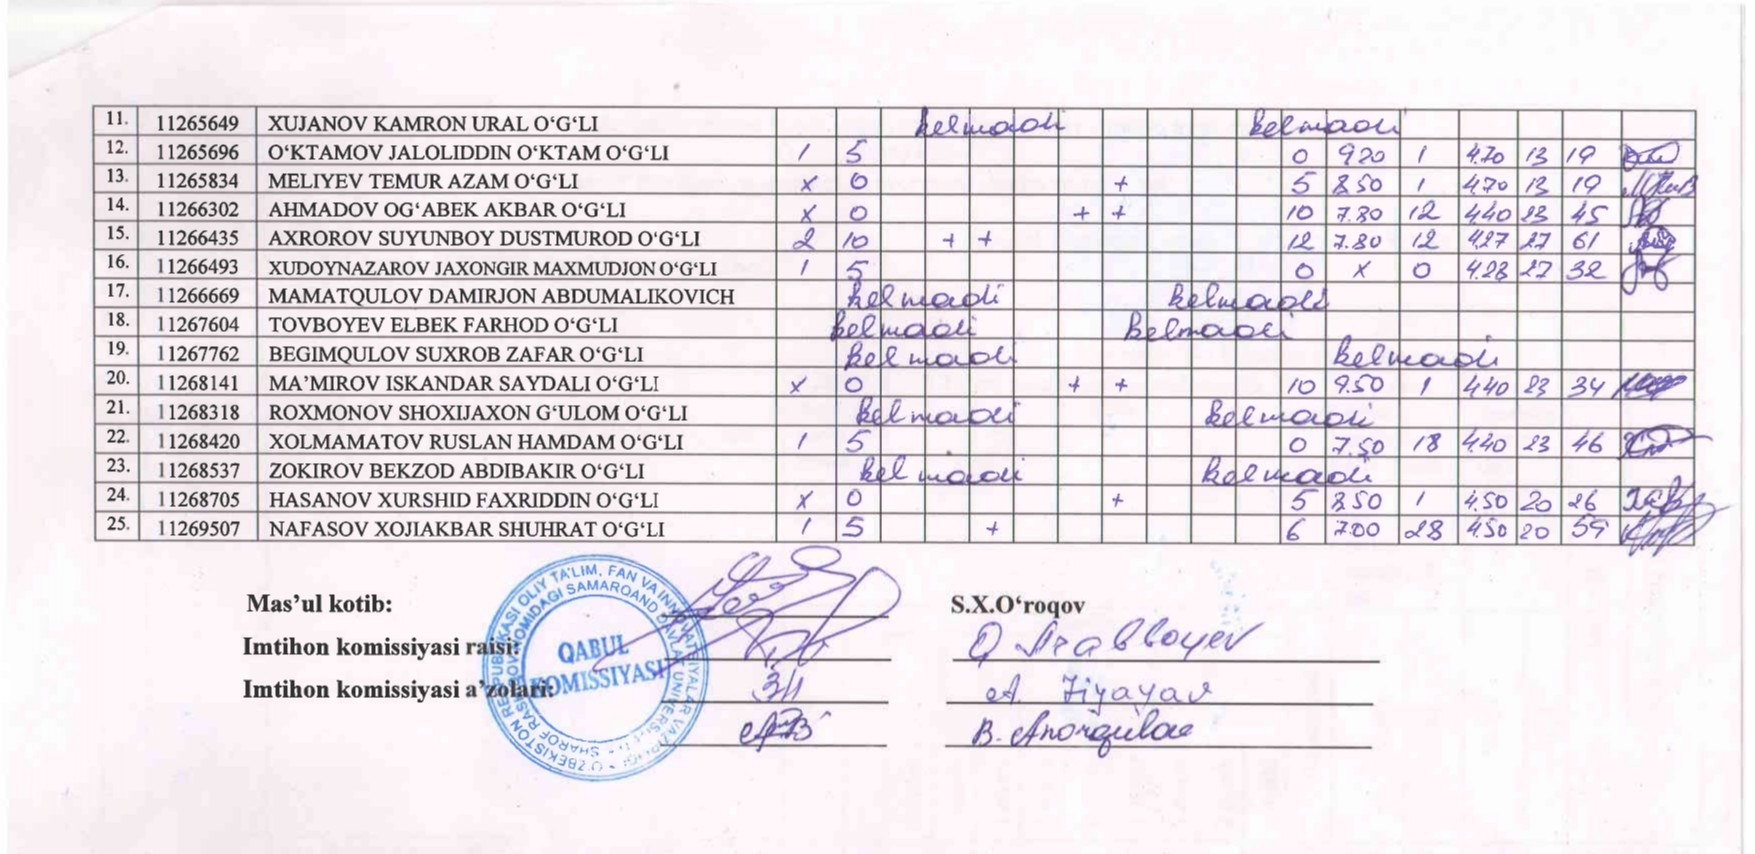 11. 11265649 XUJANOV KAMRON URAL O‘G‘LI kelmadi kelmadi
12. 11265696 O‘KTAMOV JALOLIDDIN O‘KTAM O‘G‘LI 1 5 0 9.20 1 4.70 13 19
13. 11265834 MELIYEV TEMUR AZAM O‘G‘LI x 0 + 5 8.50 1 4.70 13 19
14. 11266302 AHMADOV OG‘ABEK AKBAR O‘G‘LI x 0 + + 10 7.80 12 4.40 23 45
15. 11266435 AXROROV SUYUNBOY DUSTMUROD O‘G‘LI 2 10 + + 12 7.80 12 4.27 27 61
16. 11266493 XUDOYNAZAROV JAXONGIR MAXMUDJON O‘G‘LI 1 5 0 x 0 4.28 27 32
17. 11266669 MAMATQULOV DAMIRJON ABDUMALIKOVICH kelmadi kelmadi
18. 11267604 TOVBOYEV ELBEK FARHOD O‘G‘LI kelmadi kelmadi
19. 11267762 BEGIMQULOV SUXROB ZAFAR O‘G‘LI kelmadi kelmadi
20. 11268141 MA’MIROV ISKANDAR SAYDALI O‘G‘LI x 0 + + 10 9.50 1 4.40 23 34
21. 11268318 ROXMONOV SHOXIJAXON G‘ULOM O‘G‘LI kelmadi kelmadi
22. 11268420 XOLMAMATOV RUSLAN HAMDAM O‘G‘LI 1 5 0 7.50 18 4.40 23 46
23. 11268537 ZOKIROV BEKZOD ABDIBAKIR O‘G‘LI kelmadi kelmadi
24. 11268705 HASANOV XURSHID FAXRIDDIN O‘G‘LI x 0 + 5 8.50 1 4.50 20 26
25. 11269507 NAFASOV XOJIAKBAR SHUHRAT O‘G‘LI 1 5 + 6 7.00 28 4.50 20 59
Mas’ul kotib: S.X.O‘roqov
Imtihon komissiyasi raisi:
Imtihon komissiyasi a’zolari: A.
B.
QABUL
KOMISSIYASI